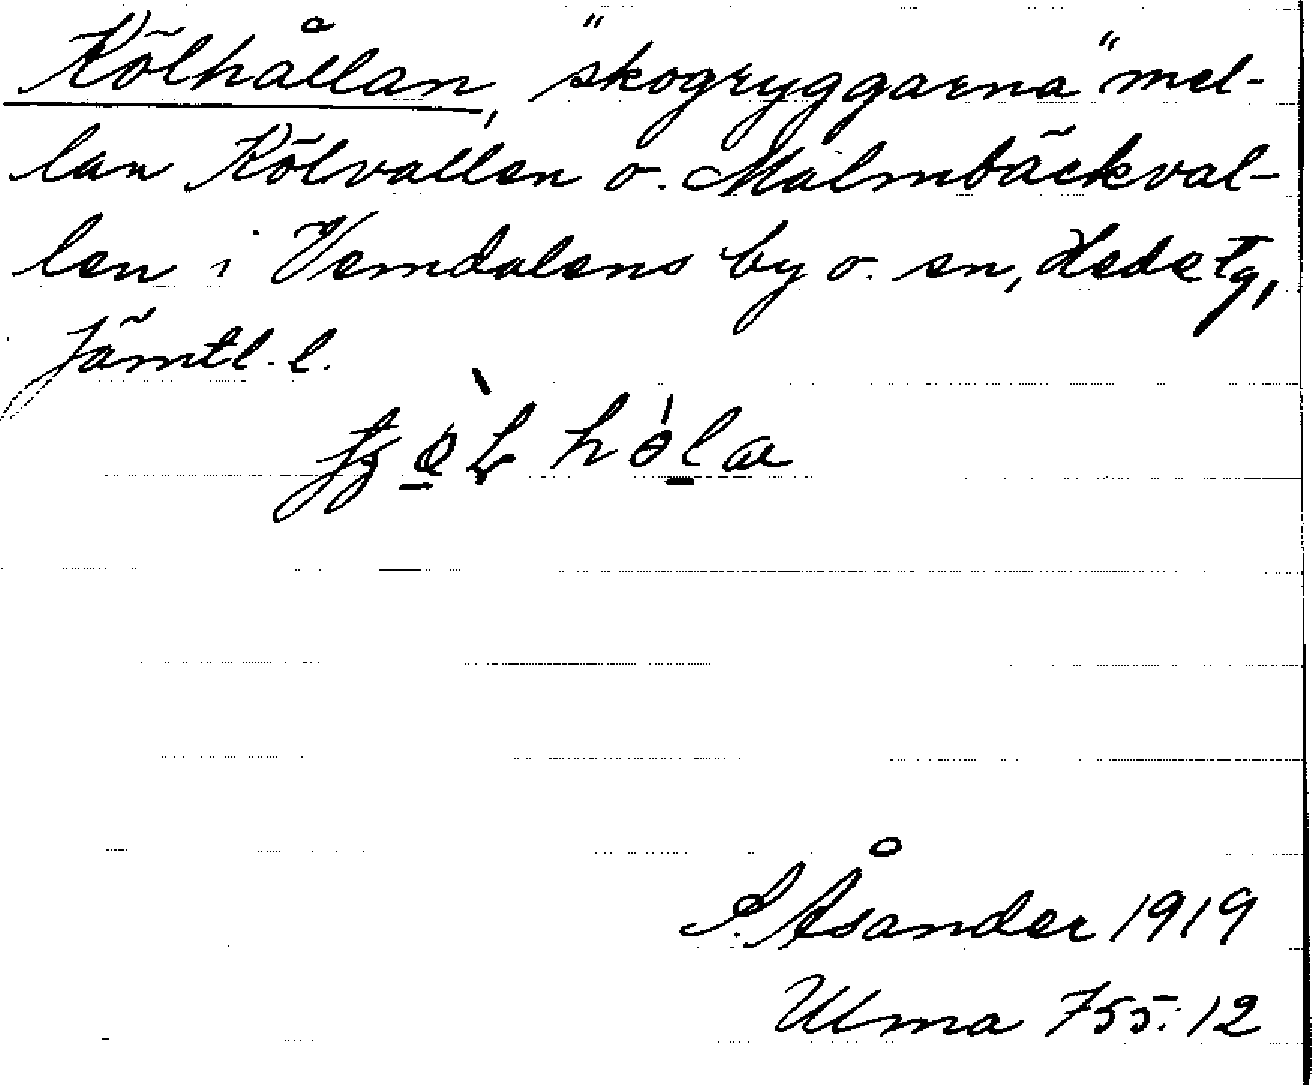 Kölhållan, "skogryggarna" mel-
lan Kölvallen o. Malmbäckval-
len i Vemdalens by o. sn, Hede tg,
Jämtl. l.
S. Åsander 1919
Ulma 755:12